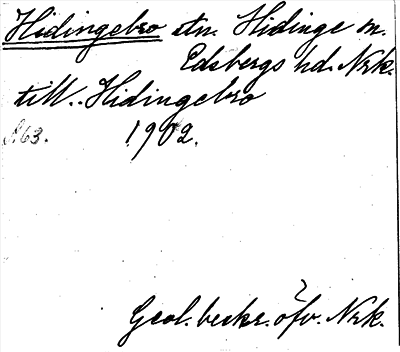 Hidingebro stn. Hidinge sn.
Edsbergs hd. Nrk.
till. Hidingebro
s. 63. 1902.
Geol. beskr. öfv. Nrk.